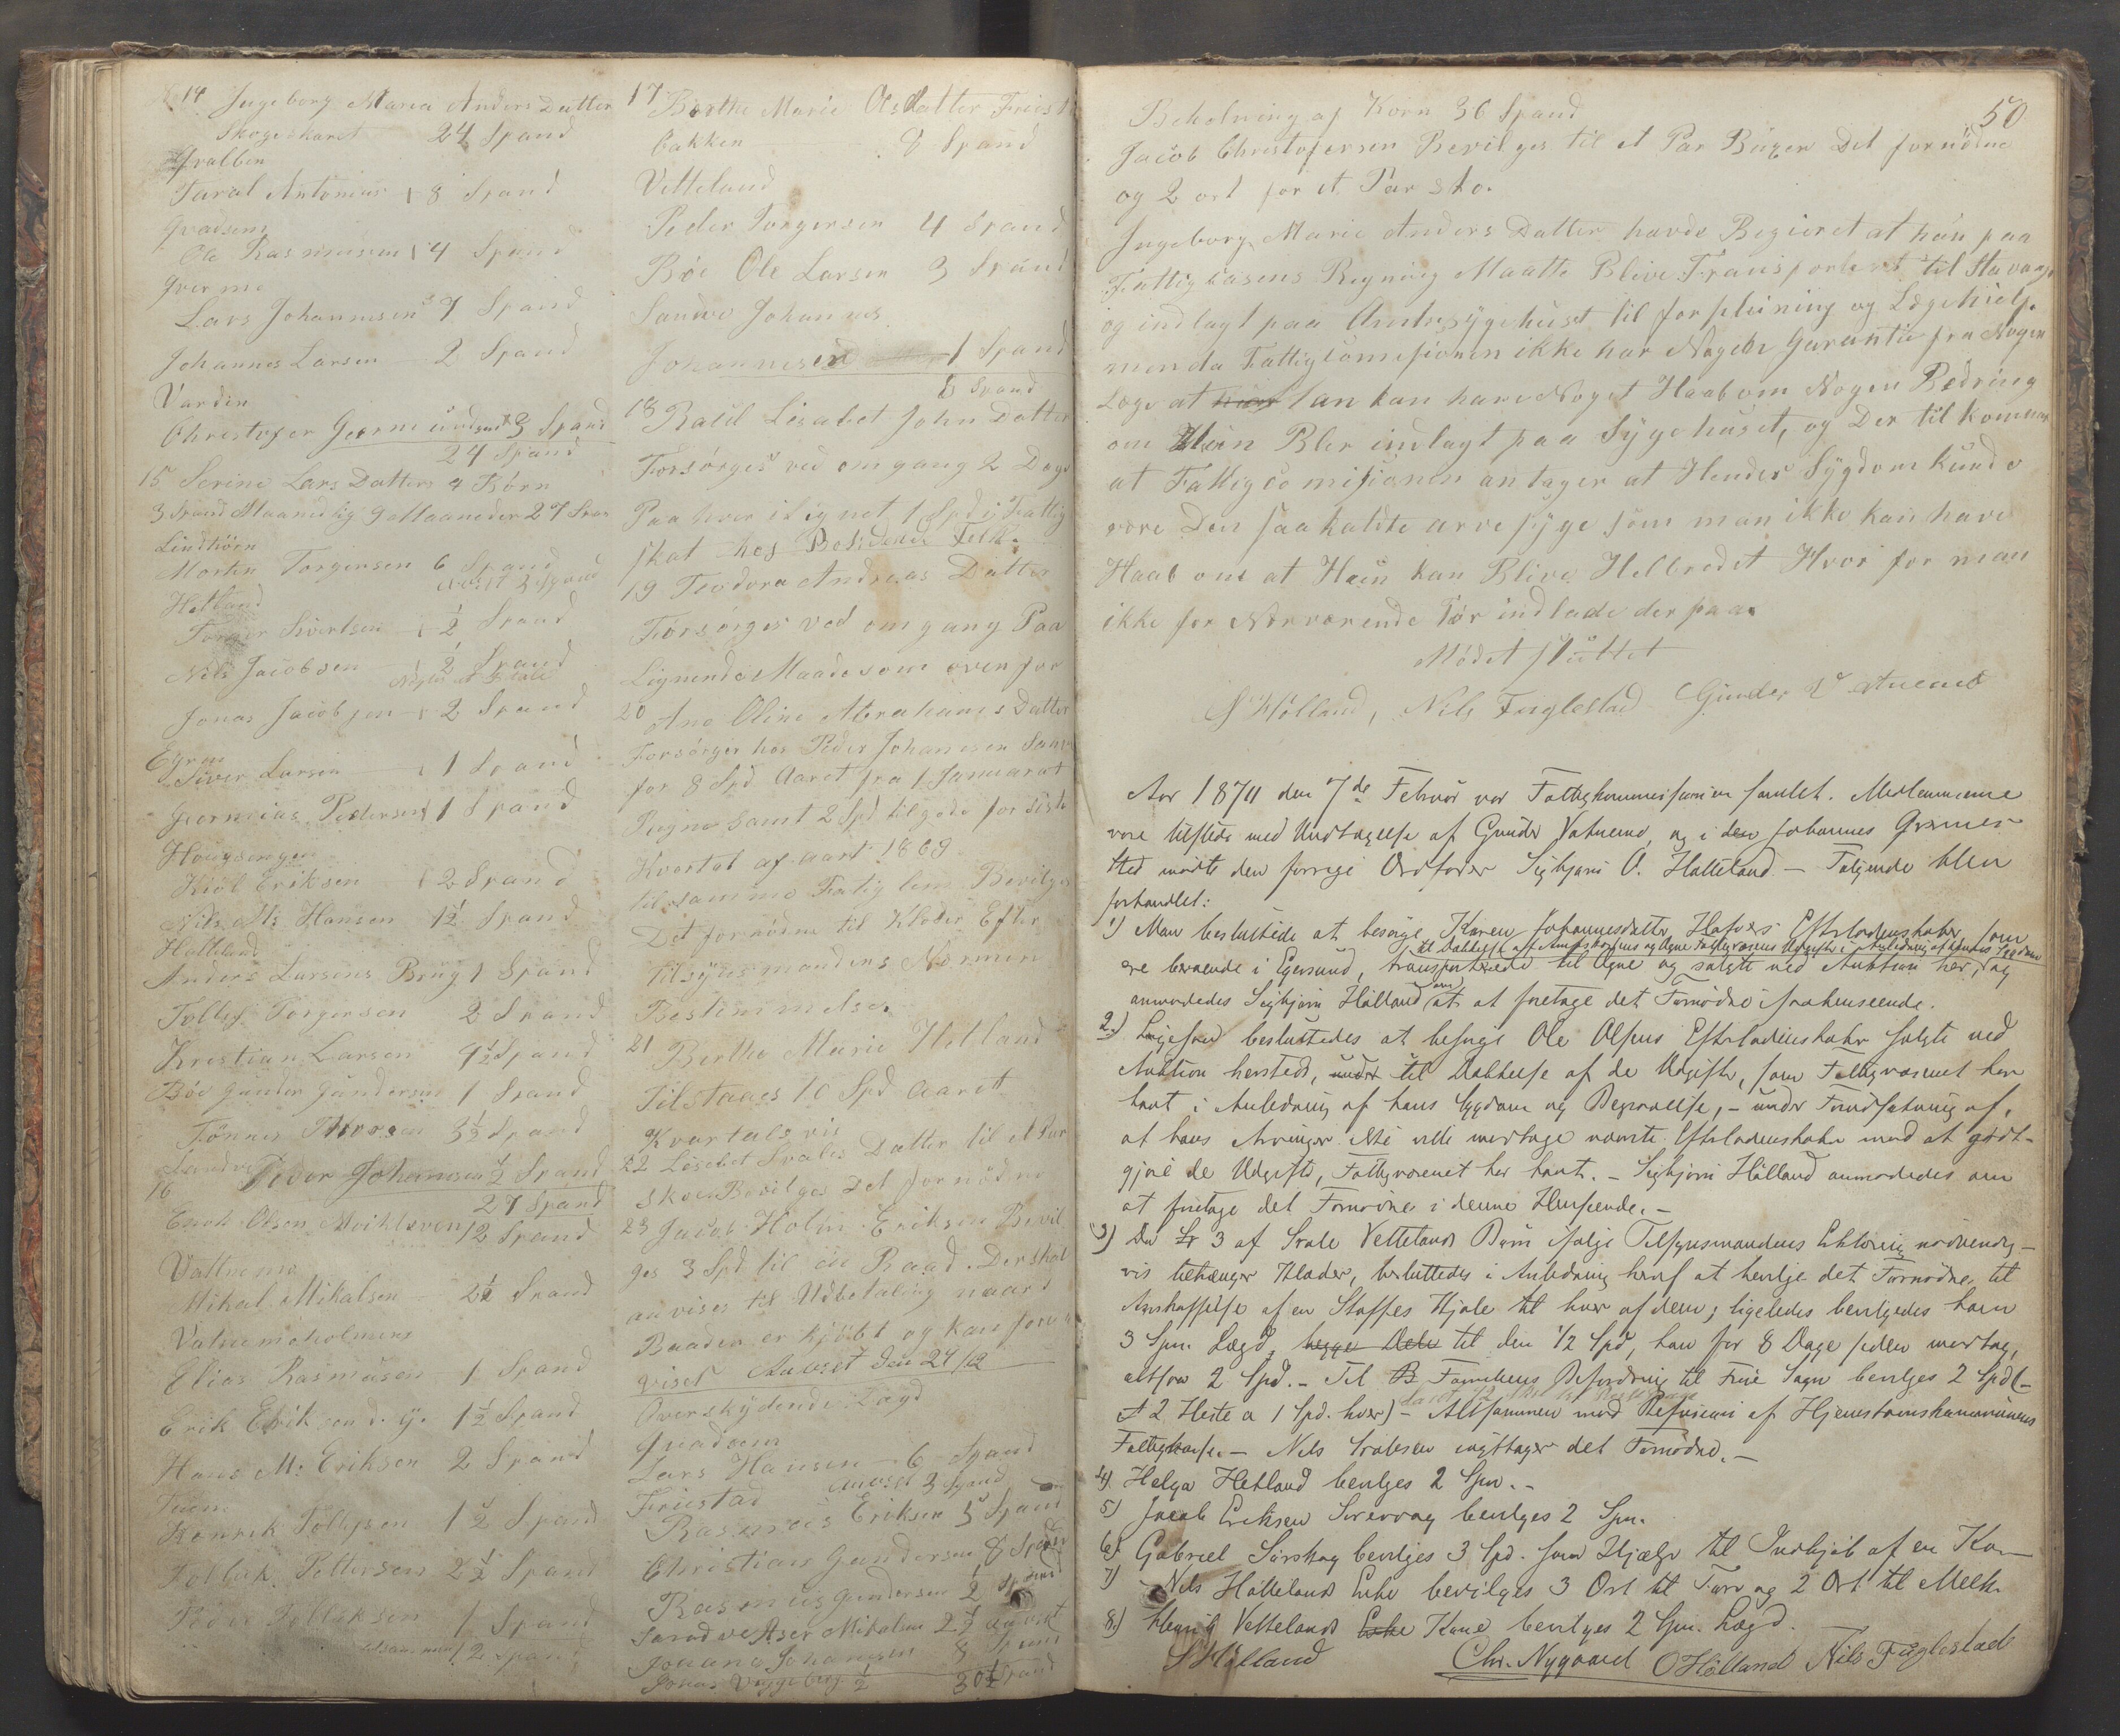 14 Ingeborg Maria Anders Datter
Skogeskaret 24 Spand
Taral Antonius 8 Spand
Qvadsem
Ole Rasmusen 4 Spand
Lars Johannesen 7 Spand
Johannes Larsen 2 Spand
Varden
Christofer 3 Spand
24 Spand
15 Serine Lars Datters 4 Börn
3 Spand Maanedlig 9 Maaneder 27 Span
Morten Torgersen 6 Spand
Hetland
Torger Sivertsen ½ Spand
Nils Jacobsen ½ Spand
Jonas Jacobsen 2 Spand
Siver Larsen 1 Spand
Pedersen 1 Spand
Eriksen 2 Spand
Nils M: Hansen 1½ Spand
Hölleland
Anders Larsens Brüg 1 Spand
Tollef Torgersen 2 Spand
Kristian Larsen 4½ Spand
Böe Gunder Gundersen 1 Spand
Tönnes 3½ Spand
Peder Johannesen ½ Spand
27 Spand
16
Enok Olsen 12 Spand
Vatnemo
Mikal Mikalsen 2½ Spand
Vatnemoholmen
Elias Rasmusen 1 Spand
Erik Eriksen d. y. 1½ Spand
Hans M: Eriksen 2 Spand
Tuen
Henrik Tollefsen 1½ Spand
Tollak Pettersen 2½ Spand
Peder Tollaksen 1 Spand
12 Spand
17 Berthe Marie Olsdatter Friest
bakken 8 Spand
Vetteland
Peder Torgersen 4 Spand
Böe Ole Larsen 3 Spand
Sandve Johannes
Johannesen 1 Spand
8 Spand
18 Lisabet John Datter
Forsørges ved omgang 2 Dage
Paa hver 1 Spd i Fattig
skat hos Folk.
19 Teodora Andreas Datter
Forsørges ved omgang Paa
Lignende Maade som ovenfor
20 Ane Oline Abrahams Datter
Forsørges hos Peder Johannesen
for 8 Spd Aaret fra 1 Januar at
samt 2 Spd tilgode for siste
Kvartal af aart 1869
til samme Fatiglem Bevilges
Det fornödne til Kloder Efter
tilsynsmandens Nærmere
Bestemmelse.
21 Berthe Marie Hetland
Tilstaaes 10 Spd Aaret
Kvartalsvis
22 Lisebet Svales Datter til et Par
Skoe Bevilges Det fornödne
23 Jacob Holm Eriksen Bevil
ges 3 Spd til en Baad. Der skal
anvises til Udbetaling naar
Baaden er kjöbt og kan
viset Anviset den 29/12
Overskydende Lægd
Qvadsem
Lars Hansen 6 Spand
Anvist 3 Spand
Friestad
Rasmus Eriksen 5 Spand
Christian Gundersen 8 Spand
Rasmus Gundersen ½ Spand
Sandve Aser Mikalsen 2½ anvist
Johans Johansen 8 Spand
Jonas ½ 30½ Spand
50
Beholning af Korn 36 Spand
Jacob Christofersen Bevilges til et Par Buxer Det fornödne
og 2 ort for et Par Sko.
Ingeborg Marie Anders Datter havde Begieret at hun paa
Fattigcasens Regning Maatte Blive Transporteret til Stavanger
og indlagt paa Amtssygehuset til forpleining og Lægehielp
men da Fattigcomisionen ikke har Nogen Garantie fra Nogen
Læge at han kan have Noget Haab om Nogen Bedring
om Hun Bler indlagt paa Sygehuset, og Der til kommer
at Fattigcomisionen antager at Hendes Sygdom kunde
være Den saakaldte arvesyge som man ikke kan have
Haab om at Hun kan Blive Helbredet Hvorfor man
ikke for Nærværende Tør indlade der paa.
Mødet sluttet
S Hölland, Nils Fuglestad Gunder Vatnemo
Aar 1870 den 7de Februar var Fattigkommissionen samlet. Medlemmerne
vare tilstede med Undtagelse af Gunder Vatnemo, og i den Johannes Grømes
Sted mødte den forrige Ordfører Sigbjørn O. Hølleland. — Følgende blev
forhandlet:
1) Man besluttede at besørge Karen Johannesdatter Hafvers Efterladenskaber, som
til Dækkelse af Amtskassens og Ogne Fattigvæsens Udgifter i Anledning af hendes Sygdom
ere beroende i Egersund, transporterede til Ogne og solgte ved Auktion her, og
anmodedes Sigbjørn Hölland om at foretage det Fornødne i saahenseende.
2) Ligesaa besluttedes at besørge Ole Olsens Efterladenskaber solgte ved
Auktion hersteds, til Dækkelse af de Udgifter, som Fattigvæsenet har
havt i Anledning af hans Sygdom og Begravelse, – under Forudsætning af,
at hans Arvinger ikke ville modtage nævnte Efterladenskaber mod at godt-
gjøre de Udgifter, Fattigvæsenet har havt. – Sigbjørn Hölland anmodedes om
at foretage det Fornødne i denne Henseende. –
3) Da 3 af Svale Vettelands Børn ifølge Tilsynsmandens Erklæring nødvendig-
vis tiltrænger Klæder, besluttedes i Anledning heraf at bevilge det Fornødne til
Anskaffelse af en Stoffes Kjole til hver af dem; ligeledes bevilgedes ham
3 Spn. Lægd, begge Dele til den 1/2 Spd, han for 8 Dage siden modtog,
altsaa 2 Spd. – Til Familiens Befordring til Fuie Sogn bevilges 2 Spd (–
2 Heste a 1 Spd. hver) – Altsammen mod Refusion af Hjemstavnskommunens
Fattigkasse. – Nils Svalesen iagttager det Fornødne. –
4) Helga Hetland bevilges 2 Spn. –
5) Jacob Eriksen Sirevaag bevilges 2 Spn.
6) Gabriel Sørskog bevilges 3 Spd. som Hjælp til Indkjøb af en Ko –
7) Nils Höllelands Enke bevilges 3 Ort til Torv og 2 Ort til Melk.
8) Henrik Vettelands Enke Kone bevilges 2 Spn. Lægd.
S Hölland Chr. Nygaard O Hölland Nils Fuglestad